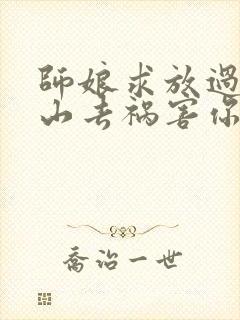 師娘求放過
山去禍害你
喬治一世